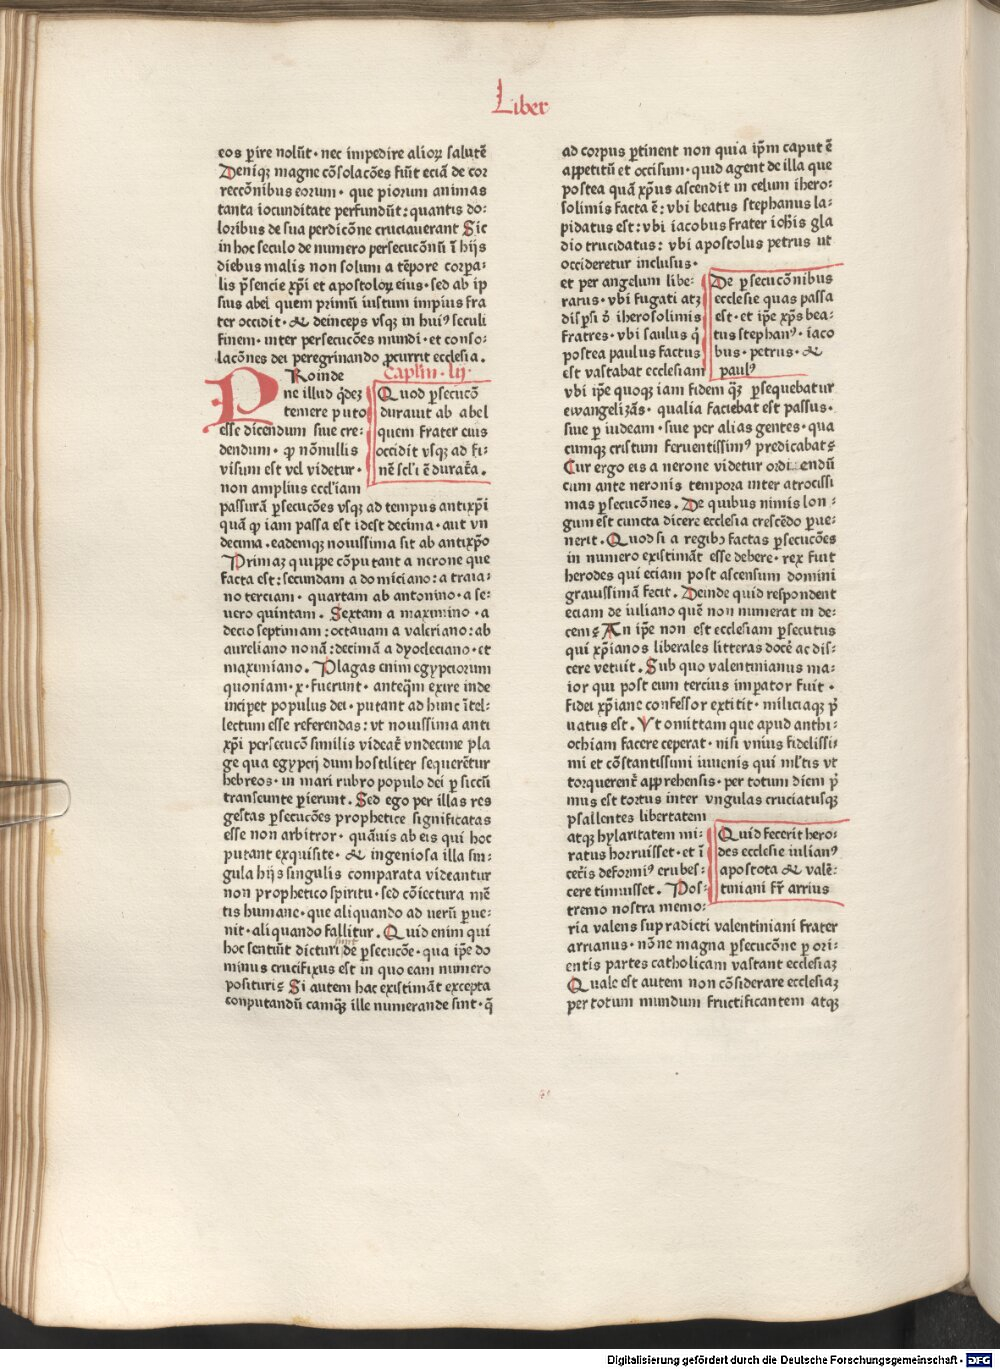 Liber
eos ꝑire nolūt · nec impedire alioꝝ salutē
Deniqꝫ magne cōsolacōes fiūt eciā de cor
reccōnibus eorum · que piorum animas
tanta iocunditate perfundūt : quantis do-
loribus de sua perdicōne cruciauerant Sic
in hoc seculo de numero persecucōnū ī hijs
diebus malis non solum a tēpore corꝑa-
lis p̄sencie xp̄i et apostoloꝝ eius · sed ab ip
sius abel quem primū iustum impius fra
ter occidit · & deinceps vsqꝫ in huiꝰ seculi
finem · inter persecucōes mundi · et conso-
lacōnes dei peregrinando ꝓcurrit ecclesia .
Caplm · lij ·
PRoinde
ne illud q̇dez
temere puto
esse dicendum siue cre-
dendum · ꝙ nōnullis
visum est vel videtur ·
non amplius eccl'iam
Quod ꝑsecucō
durauit ab abel
quem frater eius
occidit vsqꝫ ad fi-
nē scl'i ē durat̄a .
passurā ꝑsecucōes vsqꝫ ad tempus antixp̄i
quā ꝙ iam passa est idest decima · aut vn
decima . eademqꝫ nouissima sit ab antixp̄o
Primaꝫ quippe cōputant a nerone que
facta est : secundam a domiciano : a traia-
no terciam · quartam ab antonino · a se-
uero quintam . Sextam a maximino · a
decio septimam : octauam a valeriano : ab
aureliano nonā : decimā a dyocleciano · et
maximiano . Plagas enim egypciorum
quoniam · x · fuerunt · anteq̄m exire inde
inciꝑet populus dei · putant ad hunc ītel-
lectum esse referendas : vt nouissima anti
xp̄i persecucō similis videat̄ vndecime pla
ge qua egypcij dum hostiliter sequerētur
hebreos · in mari rubro populo dei ꝑ siccū
transeunte ꝑierunt . Sed ego per illas res
gestas ꝑsecucōes prophetice significatas
esse non arbitror · quāuis ab eis qui hoc
putant exquisite · & ingeniosa illa sin-
gula hijs singulis comparata videantur
non prophetico spiritu · sed cōiectura mē
tis humane · que aliquando ad uerū ꝑue-
nit · aliquando fallitur . Quid enim qui
hoc sentiūt dicturi sunt de ꝑsecucōe · qua ip̄e do
minus crucifixus est in quo eam numero
posituri? Si autem hac existimāt excepta
conputandū tamqꝫ ille numerande sint · q̄
ad corpus ꝑtinent non quia ip̄m caput ē
appetitū et occisum · quid agent de illa que
postea quā xp̄us ascendit in celum ihero-
solimis facta ē : vbi beatus stephanus la-
pidatus est : vbi iacobus frater ioh̄is gla
dio trucidatus : vbi apostolus petrus ut
occideretur inclusus ·
et per angelum libe-
ratus · vbi fugati atqꝫ
disꝑsi s̄t iherosolimis
fratres · vbi saulus q̇
postea paulus factus
est vastabat ecclesiam
De ꝑsecucōnibus
ecclesie quas passa
est · et ip̄e xp̄s bea-
tus stephanꝰ · iaco
bus · petrus · &
paulꝰ
vbi ip̄e quoqꝫ iam fidem qꝫ ꝑsequebatur
ewangelizās · qualia faciebat est passus ·
siue ꝑ iudeam · siue per alias gentes · qua
cumqꝫ cristum feruentissimꝰ predicabat?
Cur ergo eis a nerone videtur ordiendū
cum ante neronis tempora inter atrocissi
mas ꝑsecucōnes . De quibus nimis lon-
gum est cuncta dicere ecclesia crescēdo ꝑue-
nerit . Quod si a regibꝫ factas ꝑsecucōes
in numero existimāt esse debere · rex fuit
herodes qui eciam post ascensum domini
grauissimā fecit . Deinde quid respondent
eciam de iuliano quē non numerat in de-
cem? An ip̄e non est ecclesiam ꝑsecutus
qui xp̄ianos liberales litteras docē ac dis-
cere vetuit . Sub quo valentinianus ma-
ior qui post eum tercius imꝑator fuit ·
fidei xp̄iane confessor extitit · miliciaqꝫ p̄
uatus est . Vt omittam que apud anthi-
ochiam facere ceperat · nisi vnius fidelissi-
mi et cōstantissimi iuuenis qui ml'tis vt
torquerent̄ apprehensis · per totum diem p̄
mus est tortus inter vngulas cruciatusqꝫ
psallentes libertatem
atqꝫ hylaritatem mi-
ratus horruisset · et ī
cet̄is deformiꝰ erubes-
cere timuisset . Pos-
tremo nostra memo-
Quid fecerit hero-
des ecclesie iulianꝰ
apostota & valē-
tiniani fr̄ arrius
ria valens supradicti valentiniani frater
arrianus · nōne magna ꝑsecucōne ꝑ ori-
entis partes catholicam vastant ecclesiaꝫ
Quale est autem non cōsiderare ecclesiaꝫ
per totum mundum fructificantem atqꝫ
Digitalisierung gefördert durch die Deutsche Forschungsgemeinschaft - DFG